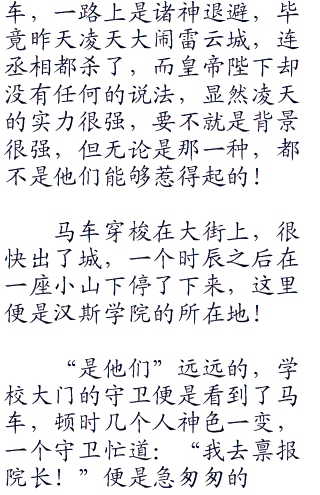 车，一路上是诸神退避，毕
竟昨天凌天大闹雷云城，连
丞相都杀了，而皇帝陛下却
没有任何的说法，显然凌天
的实力很强，要不就是背景
很强，但无论是那一种，都
不是他们能够惹得起的！
马车穿梭在大街上，很
快出了城，一个时辰之后在
一座小山下停了下来，这里
便是汉斯学院的所在地！
“是他们”远远的，学
校大门的守卫便是看到了马
车，顿时几个人神色一变，
一个守卫忙道：“我去禀报
院长！”便是急匆匆的